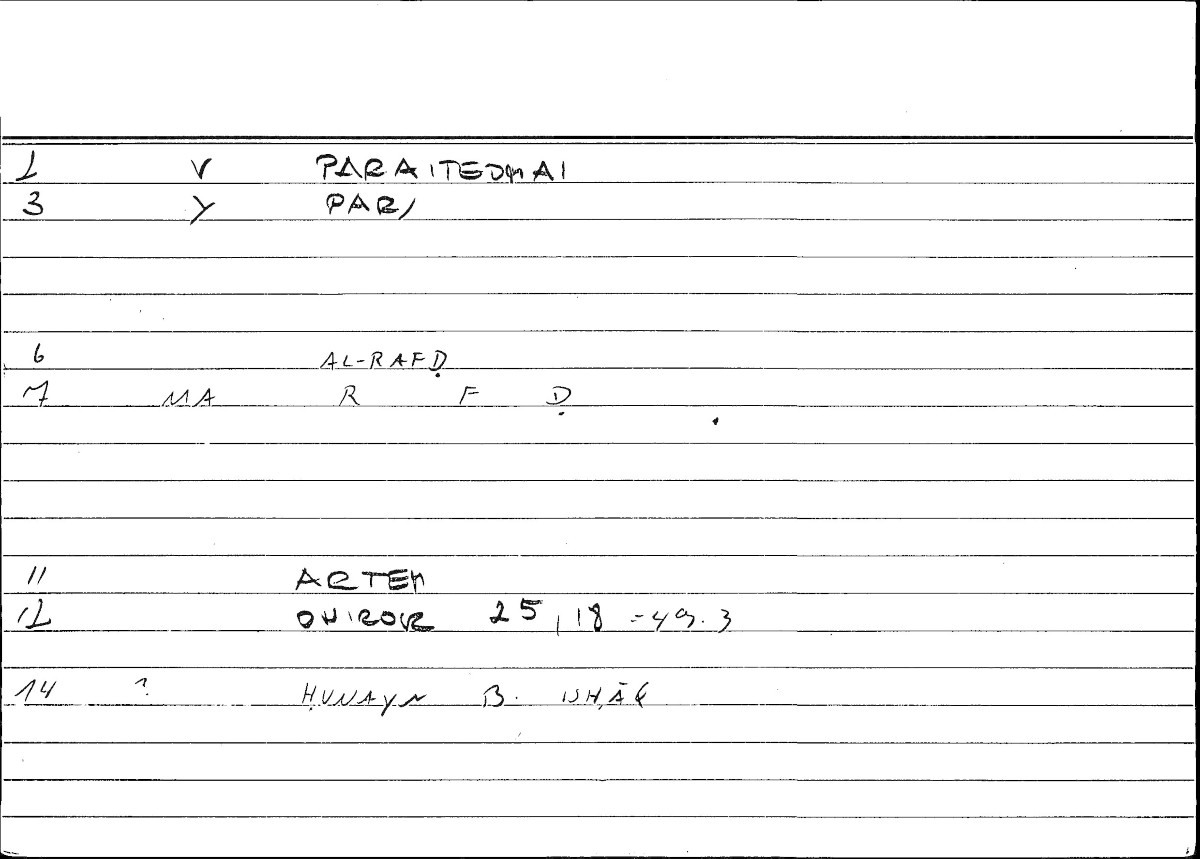 1 V PARAITEOMAI
3 Y PAR/
6 AL-RAFḌ
7 MA R F Ḍ
11 ARTEM
12 ONIROCR 25,18 = 49.3
14 ? ḤUNAYN B. ISḤĀQ